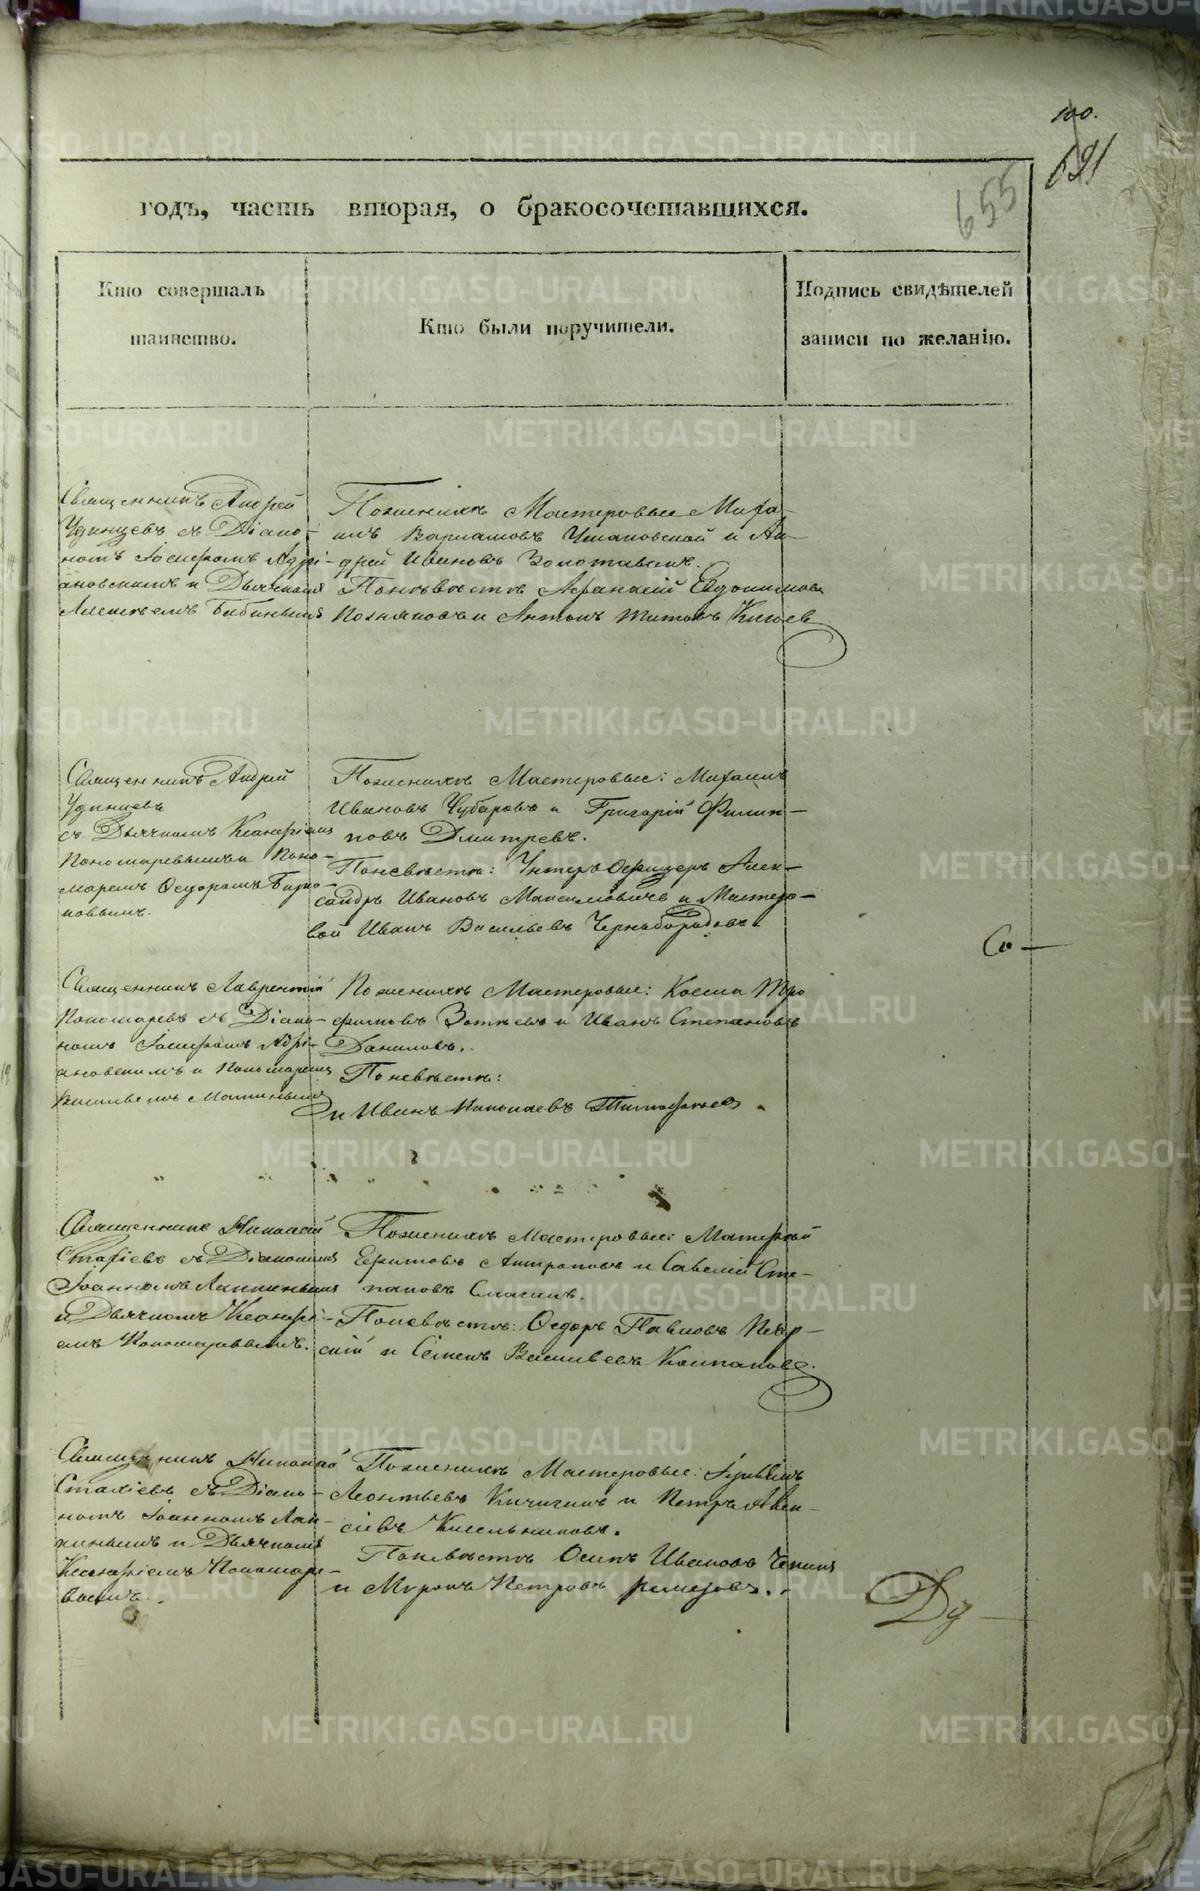 100.
691
655
годъ, часть вторая, о бракосочетавшихся.
Кто совершалъ
таинство.
Кто были поручители.
Подпись свидѣтелей
записи по желанію.
Священникъ Андрей
Удинцевъ съ Діако-
номъ Іосифомъ Адрі-
ановскимъ и Дьячкомъ
Алексѣемъ Бабинымъ
По женихѣ Мастеровые Миха-
илъ Варламовъ Ушаковской и Ан-
дрей Ивановъ Золотавинъ.
По невѣстѣ Афанасій Евдокимовъ
Позняковъ и Антонъ Титовъ
Священникъ Андрей
Удинцевъ
съ Дьячкомъ Кесаріемъ
Пономаревымъ и Поно-
маремъ Ѳедоромъ Бирю-
ковымъ.
По женихѣ Мастеровые: Михаилъ
Ивановъ Чубаровъ и Григорій Филип-
повъ Дмитревъ.
По невѣстѣ: Унтеръ Офицеръ Алек-
сандръ Ивановъ Максимовичъ и Мастеро-
вой Иванъ Васильевъ Чернобородовъ.
Со—
Священникъ Лаврентій
Пономаревъ съ Діако-
номъ Іосифомъ Адрі-
ановскимъ и Пономаремъ
Васильемъ
По женихѣ Мастеровые: Косма Тро
фимовъ Зотѣевъ и Иванъ Степановъ
Даниловъ.
По невѣстѣ:
и Иванъ Николаевъ Тимофеевъ.
Священникъ Николай
Стахіевъ съ Діакономъ
Іоанномъ Лапинымъ
и Дьячкомъ Кесарі-
емъ Пономаревымъ.
По женихѣ Мастеровые: Матвей
Ефимовъ Антроповъ и Савелій Сте-
пановъ
По невѣстѣ: Ѳедоръ Павловъ
скій и Семенъ Васильевъ Колпаковъ.
Священникъ Николай
Стахіевъ съ Діако-
номъ Іоанномъ Лап-
инымъ и Дьячкомъ
Кесаріемъ Пономаре-
вымъ.
По женихѣ Мастеровые:
Леонтьевъ Кичигинъ и Петръ Алек-
сіевъ Кисельниковъ.
По невѣстѣ Осипъ Ивановъ
и Миронъ Петровъ Ремезовъ.
Ду—